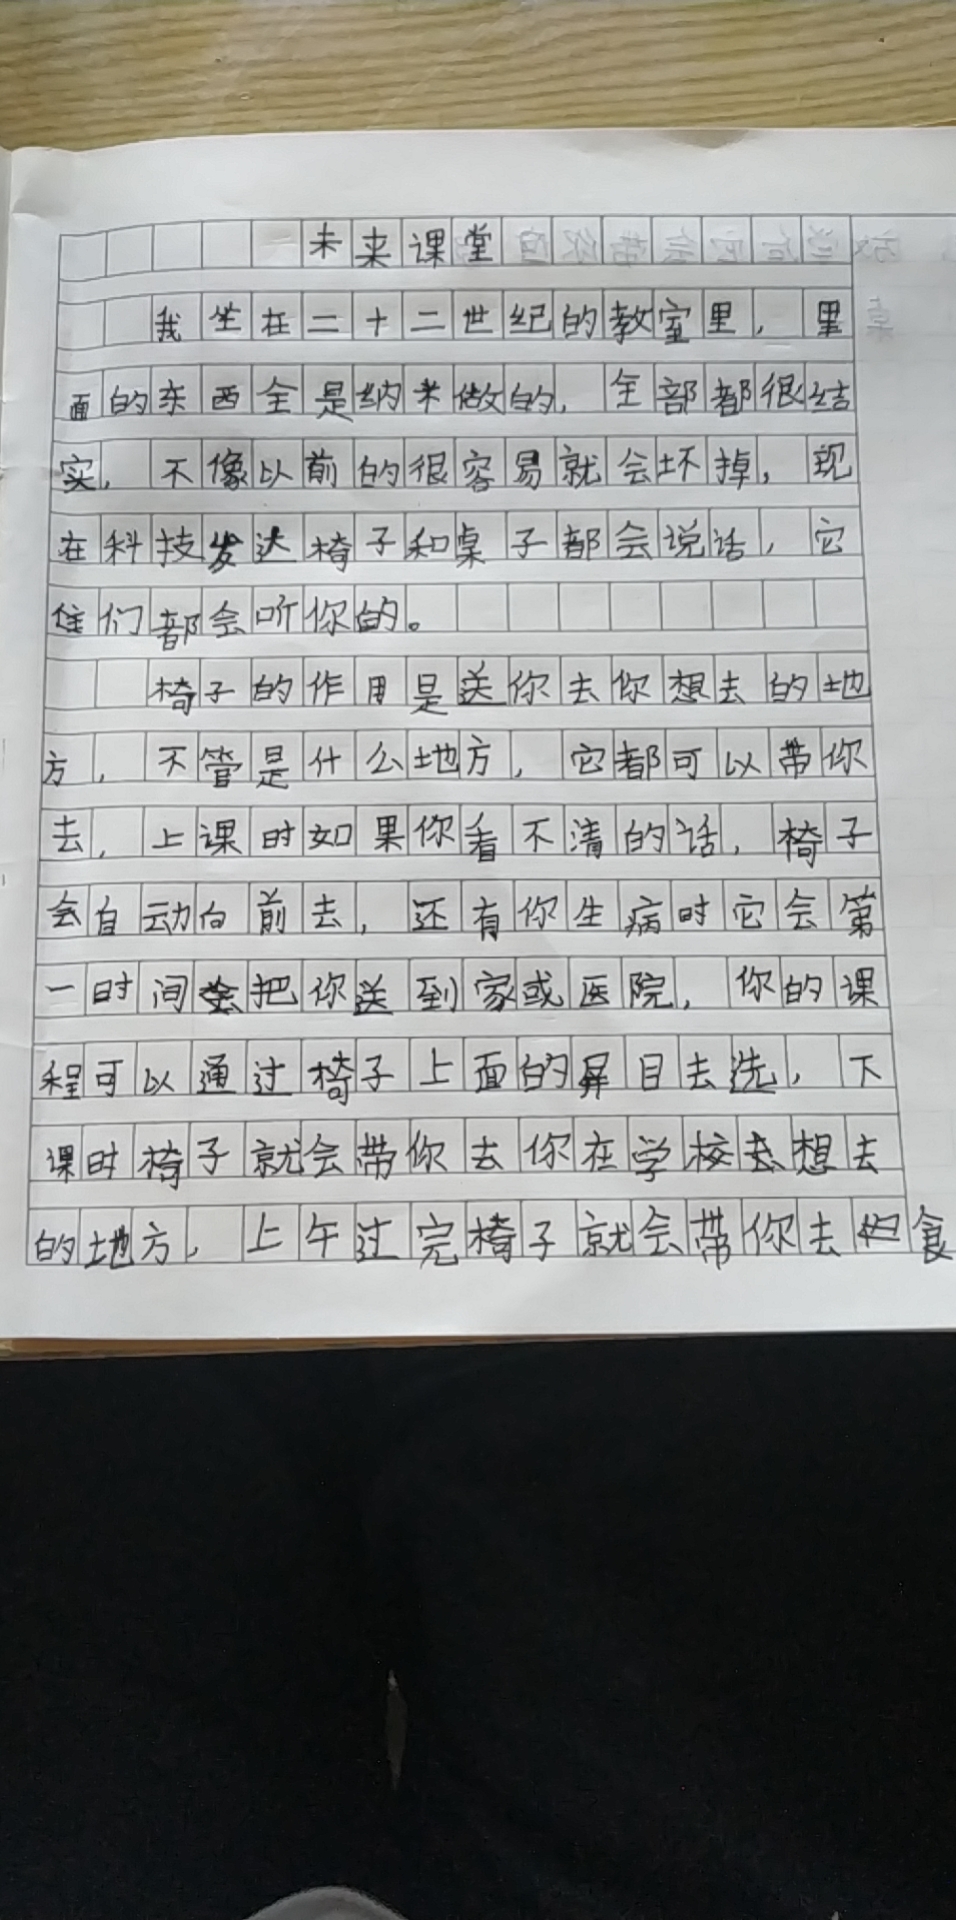 未来课堂
我坐在二十二世纪的教室里，里
面的东西全是纳米做的，全部都很结
实，不像以前的很容易就会坏掉，现
在科技发达椅子和桌子都会说话，它
们都会听你的。
椅子的作用是送你去你想去的地
方，不管是什么地方，它都可以带你
去，上课时如果你看不清的话，椅子
会自动向前去，还有你生病时它会第
一时间会把你送到家或医院，你的课
程可以通过椅子上面的屏目去选，下
课时椅子就会带你去你在学校想去
的地方，上午过完椅子就会带你去食